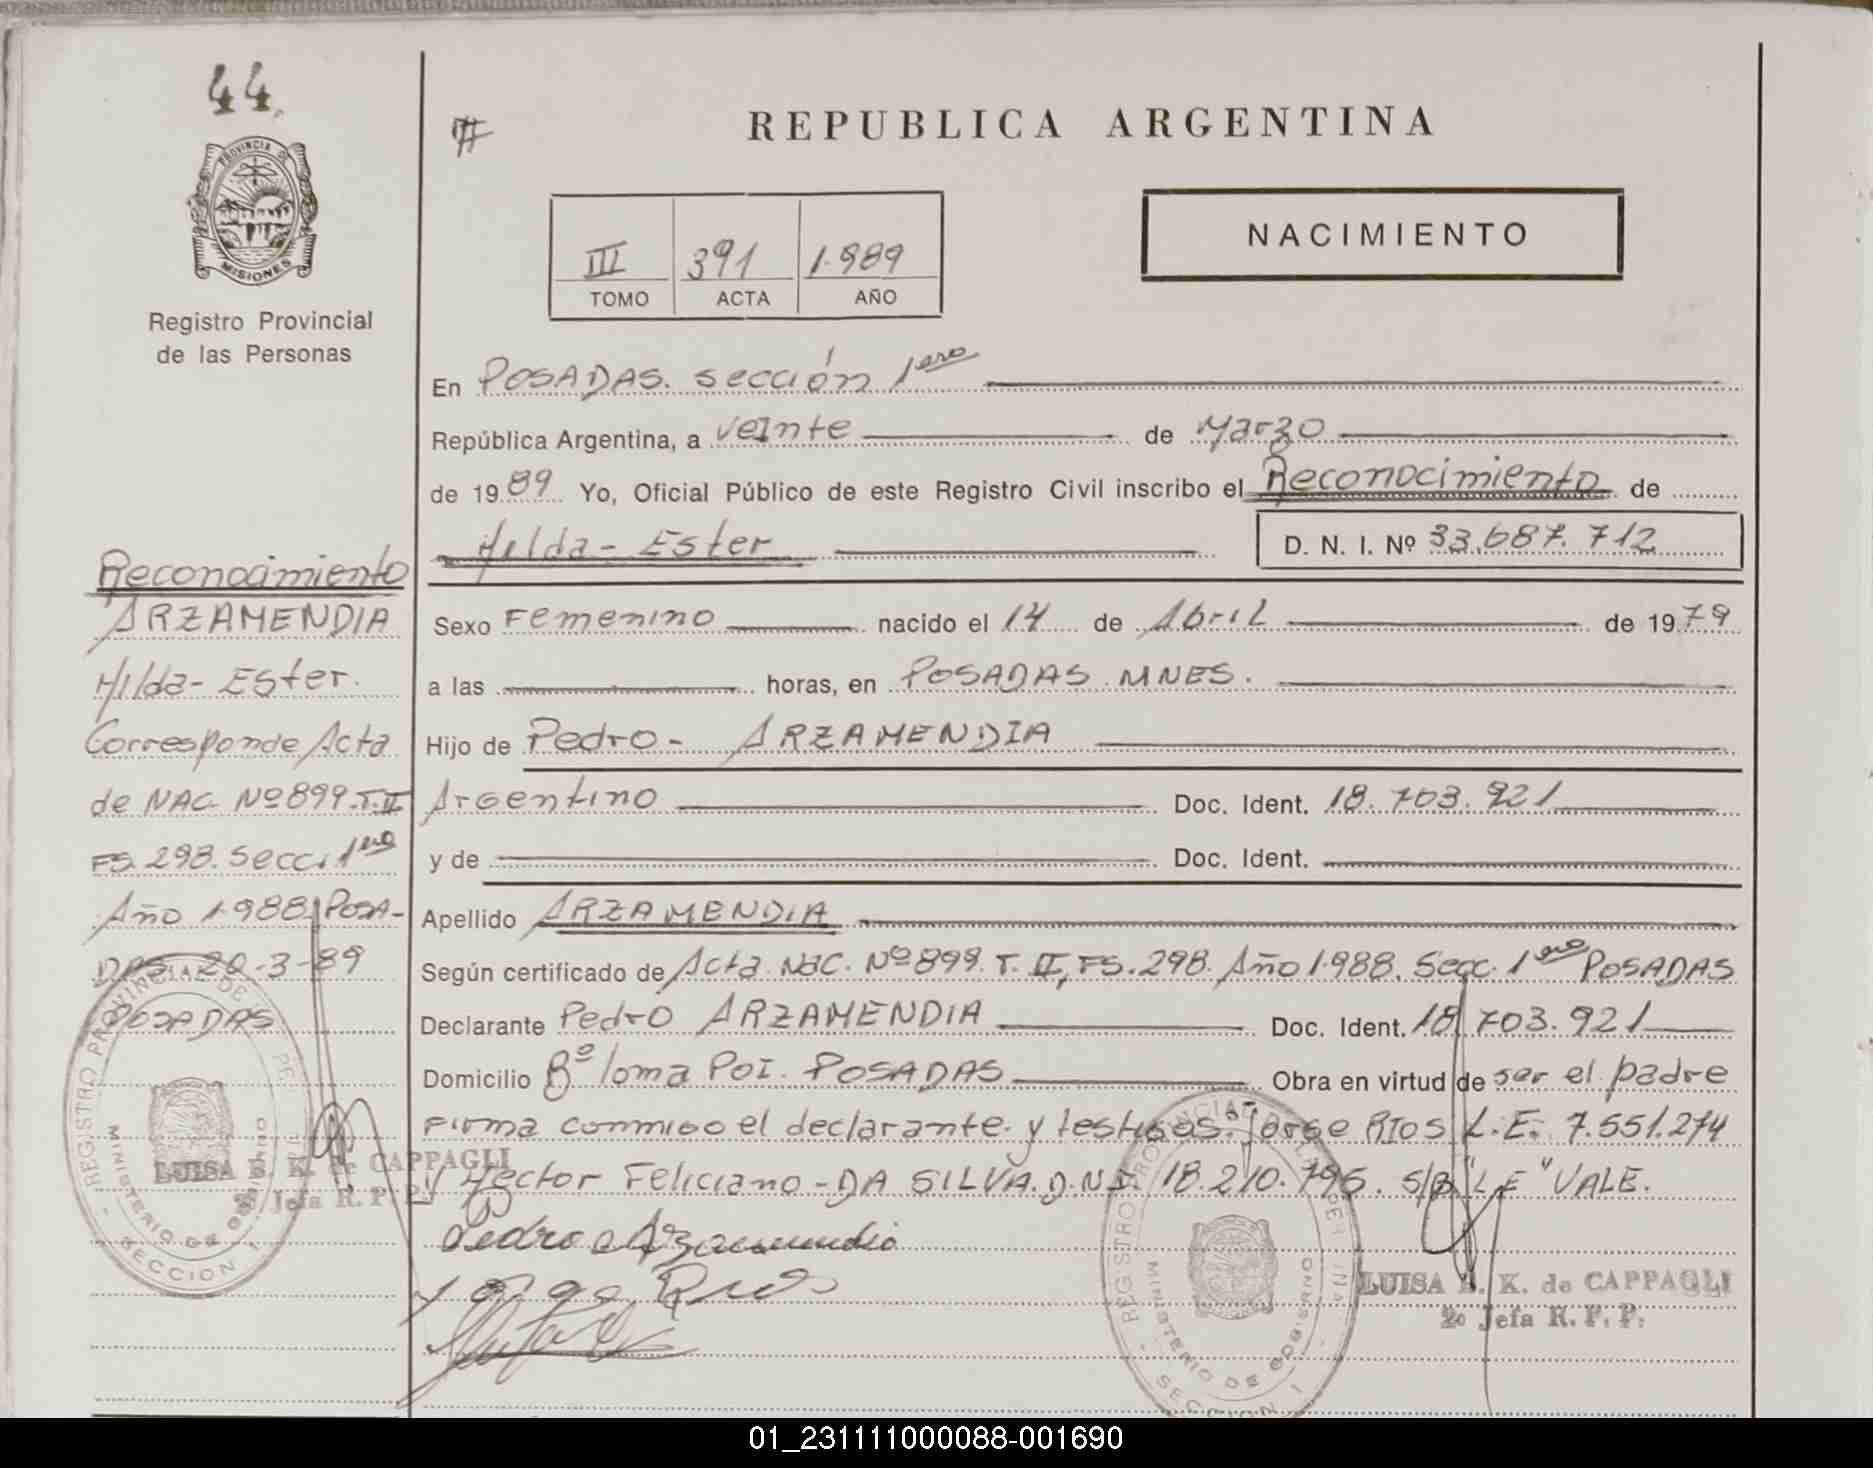 44.
PROVINCIA DE
MISIONES
Registro Provincial
de las Personas
REPUBLICA ARGENTINA
III 391 1.989
TOMO ACTA AÑO
NACIMIENTO
En POSADAS. sección 1era
República Argentina, a veinte de Marzo
de 1989 Yo, Oficial Público de este Registro Civil inscribo el Reconocimiento de
Hilda - Ester D. N. I. Nº 33.687.712
Sexo Femenino nacido el 14 de Abril de 1979
a las horas, en POSADAS MNES.
Hijo de Pedro - ARZAMENDIA
Argentino Doc. Ident. 18.703.921
y de Doc. Ident.
Apellido ARZAMENDIA
Según certificado de Acta NAC. Nº 899. T. II, FS. 298. Año 1.988. Secc. 1era POSADAS
Declarante Pedro ARZAMENDIA Doc. Ident. 18.703.921
Domicilio Bº loma POI. POSADAS Obra en virtud de ser el padre
Firma conmigo el declarante y testigos. Jorge RIOS L.E. 7.551.274
y Hector Feliciano - DA SILVA. D.N.I. 18.210.795. S/B "LE" VALE.
Pedro Arzamendia
Jorge Rios
LUISA K. de CAPPAGLI
2º Jefa R. P. P.
REGISTRO PROVINCIAL DE LAS PER
MINISTERIO DE GOBIERNO
SECCION 1
Reconocimiento
ARZAMENDIA
Hilda - Ester.
Corresponde Acta
de NAC. Nº 899. T. II
FS. 298. Secc. 1era
Año 1.988. POSA-
DAS 20-3-89
POSADAS
REGISTRO PROVINCIAL DE
MINISTERIO DE GOBIERNO
SECCION 1
LUISA K. de CAPPAGLI
2º Jefa R. P. P.
01_231111000088-001690